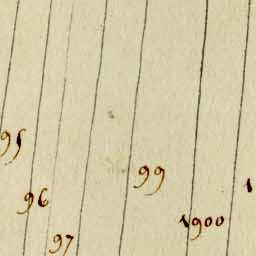 95
96
97
99
1900
1